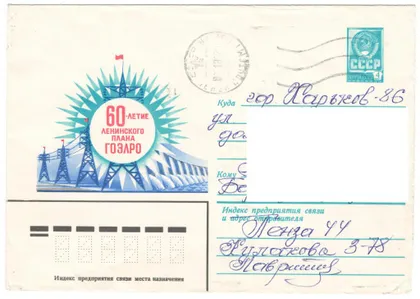 60-ЛЕТИЕ
ЛЕНИНСКОГО
ПЛАНА
ГОЭЛРО
СССР
Куда гор. Харьков-86
ул
Кому
Индекс предприятия связи
и адрес отправителя
Пенза 44
3-78
Индекс предприятия связи места назначения